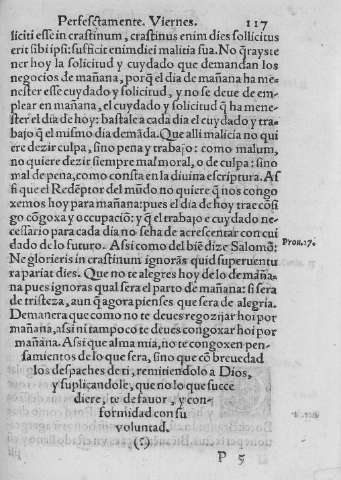 Perfectamente. Viernes. 117
liciti esse in crastinum, crastinus enim dies sollicitus
erit sibi ipsi: sufficit enim diei malitia sua. No q̃rays te
ner hoy la solicitud y cuydado que demandan los
negocios de mañana, porq̃ el dia de mañana ha me-
nester esse cuydado y solicitud, y no se deue de em-
plear en mañana, el cuydado y solicitud q̃ ha mene-
ster el dia de hoy: bastale a cada dia el cuydado y tra-
bajo q̃ el mismo dia demãda. Que alli malicia no qui
ere dezir culpa, sino pena y trabajo: como malum,
no quiere dezir siempre mal moral, o de culpa: sino
mal de pena, como consta en la diuina escriptura. As
si que el Redẽptor del mũdo no quiere q̃ nos congo
xemos hoy para mañana: pues el dia de hoy trae cõsi
go cõgoxa y occupaciõ: y q̃ el trabajo e cuydado ne-
cessario para cada dia no se ha de acrescentar con cui
dado de lo futuro. Assi como del biẽ dize Salomõ: Prou.27.
Ne glorieris in crastinum ignorãs quid superuentu
ra pariat dies. Que no te alegres hoy de lo de maña-
na pues ignoras qual sera el parto de mañana: si sera
de tristeza, aun q̃ agora pienses que sera de alegria.
De manera que como no te deues regozijar hoi por
mañana, assi ni tampoco te deues congoxar hoi por
mañana. Assi que alma mia, no te congoxen pen-
samientos de lo que sera, sino que cõ breuedad
los despaches de ti, remitiendolo a Dios,
y suplicandole, que no lo que succe
diere, te de fauor, y con-
formidad con su
voluntad.
(?)
P 5